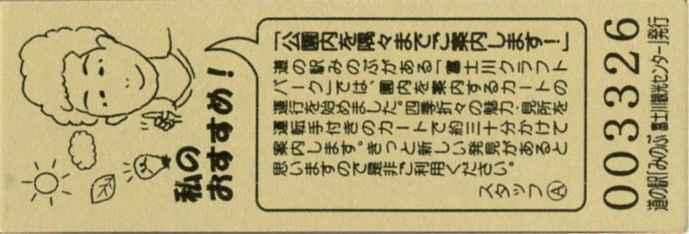 私の
おすすめ!
「公園内を隅々までご案内します!」
道の駅みのぶがある「富士川クラフト
パーク」では、園内を案内するカートの
運行を始めました。四季折々の魅力・見所を
運転手付きのカートで約三十分かけて
案内します。きっと新しい発見があると
思いますので是非ご利用ください。
スタッフⒶ
003326
道の駅「みのぶ 富士川観光センター」発行